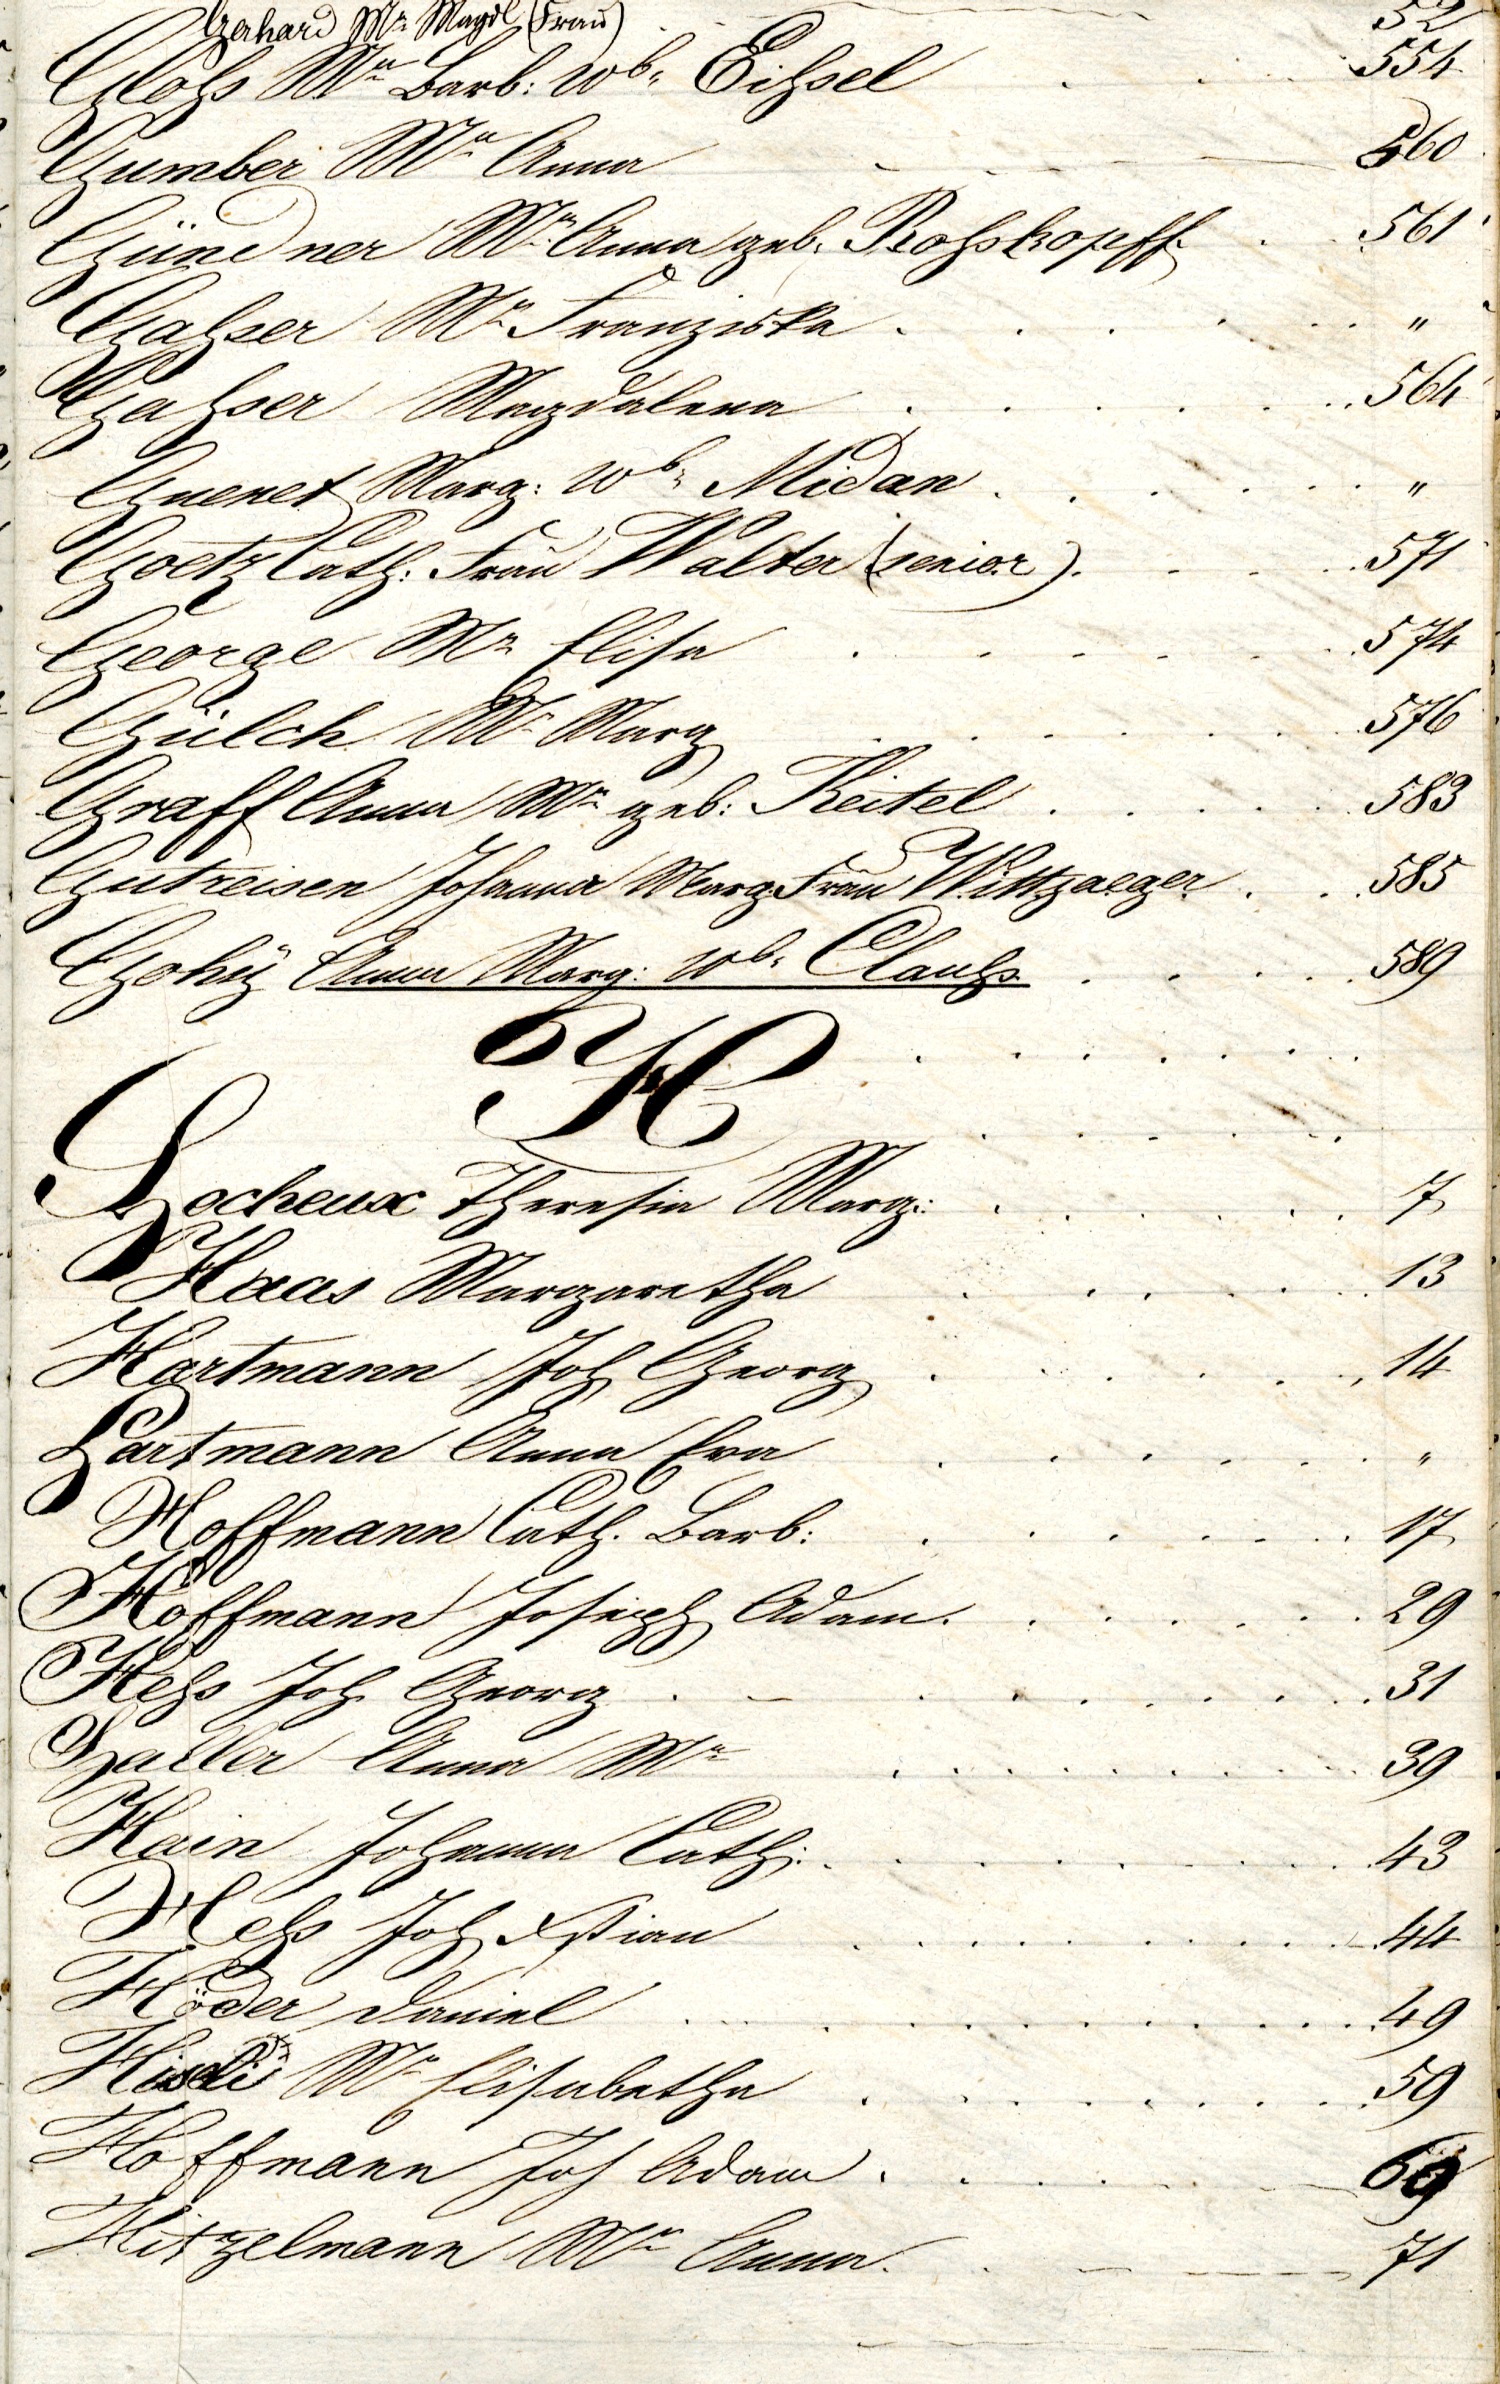 Gerhard Mᵃ Magdl (Frau) 52
Gloß Mᵃ Barb: wb. Eißel 554
Gumber Mᵃ Anna 560
Gündner Mᵃ Anna geb. Roßkopff 561
Gaßer Mᵃ Franziska "
Gaßer Magdalena 564
Guenet Marg: wb. Midan "
Goetz Cath: Frau Walter (senior) 571
George Mᵃ Elisa 574
Gülch Mᵃ Marg 576
Graff Anna Mᵃ geb: Keitel 583
Gutreisen Johanna Marg. Frau Wittzaeger 585
Gohÿ Anna Marg: wb. Clauß 589
H
Hocheux Theresia Marg: 7
Haas Margaretha 13
Hartmann Joh Georg 14
Hartmann Anna Eva "
Hoffmann Cath. Barb: 17
Hoffmann Joseph Adam 29
Heß Joh Georg 31
Haller Anna Mᵃ 39
Hain Johanna Cath: 43
Heß Joh Xstian 44
Höder Daniel 49
Mᵃ Elisabetha 59
Hoffmann Joh Adam 69
Hitzelmann Mᵃ Anna 71